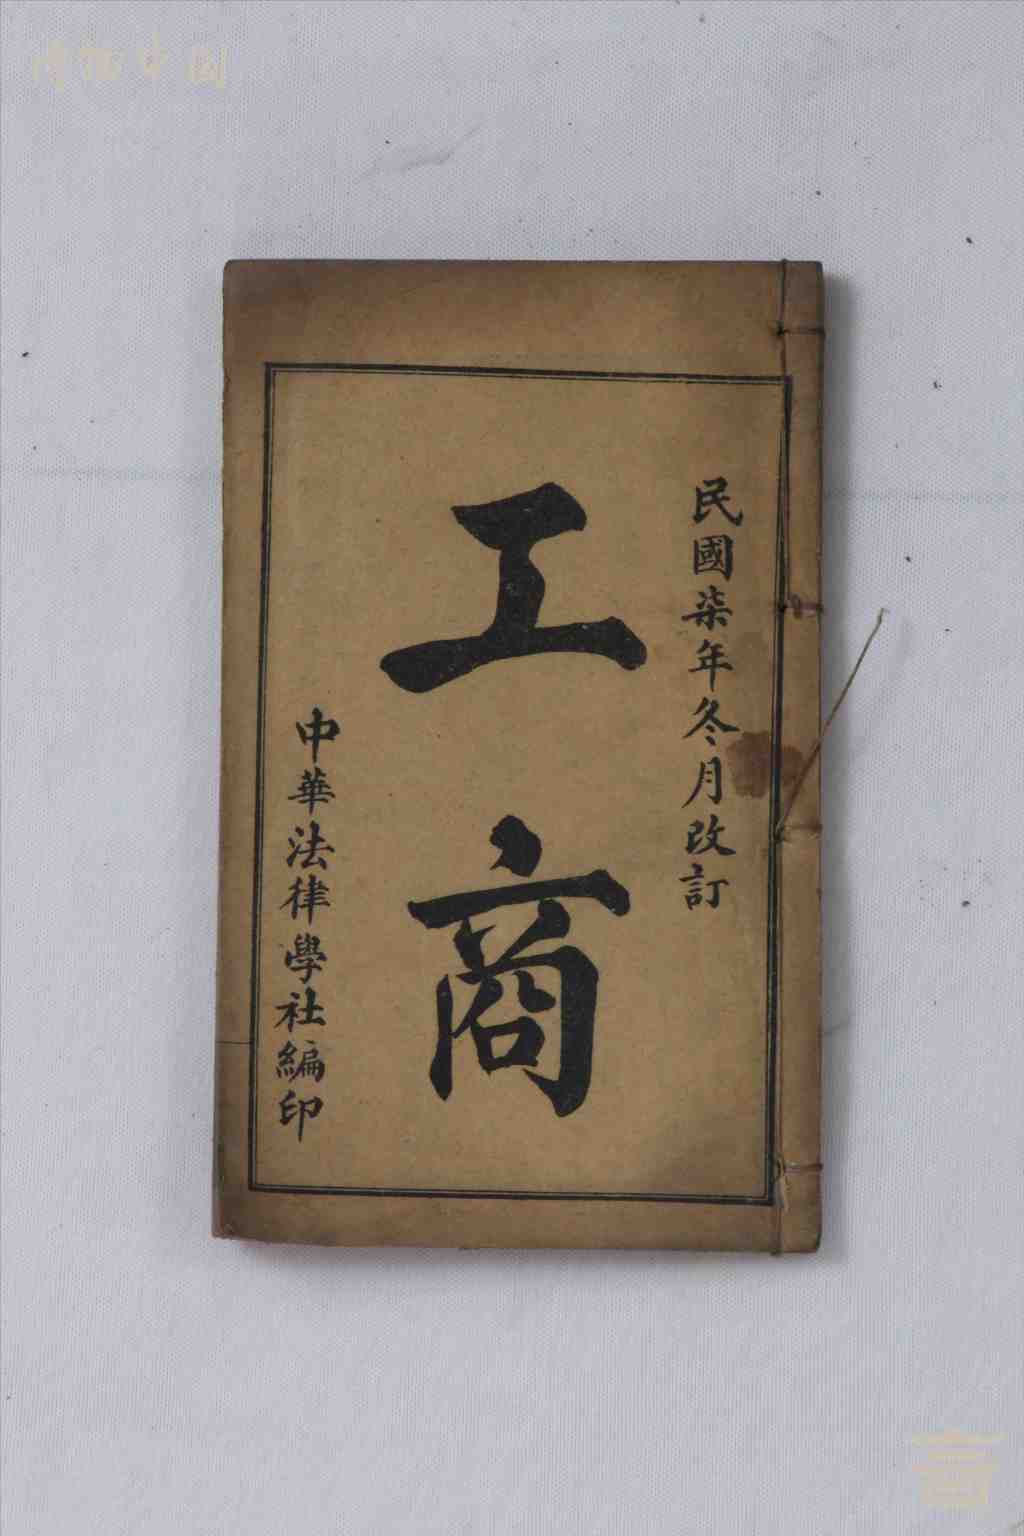 博物中国
民國柒年冬月改訂
工商
中華法律學社編印